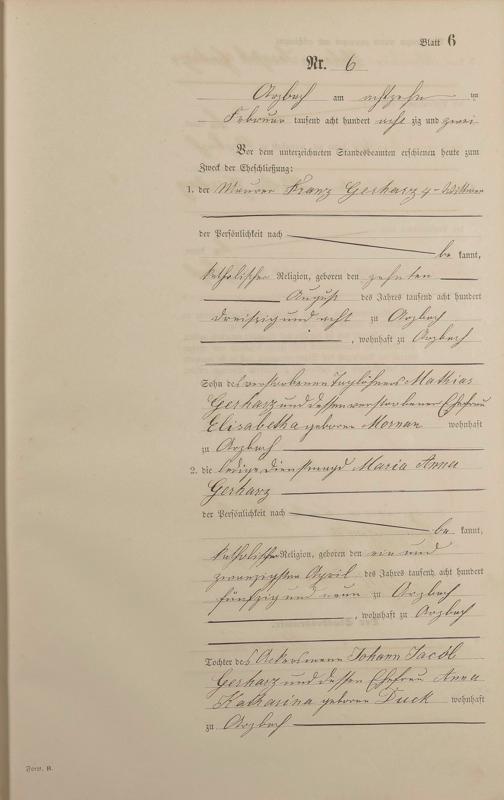 Blatt 6
Nr. 6
Arzbach am achtzehn ten
Februar tausend acht hundert acht zig und zwei
Vor dem unterzeichneten Standesbeamten erschienen heute zum
Zweck der Eheschließung:
1. der Maurer Franz Gerharz Wittwer
der Persönlichkeit nach
be kannt,
katholischer Religion, geboren den zehnten
August des Jahres tausend acht hundert
dreißig und acht zu Arzbach
, wohnhaft zu Arzbach
Sohn des verstorbenen Taglöhners Mathias
Gerharz und dessen verstorbener Ehefrau
Elisabetha geborene wohnhaft
zu Arzbach
2. die ledige Dienstmagd Maria Anna
Gerharz
der Persönlichkeit nach
be kannt,
katholischer Religion, geboren den ein und
zwanzigsten April des Jahres tausend acht hundert
fünfzig und neun zu Arzbach
, wohnhaft zu Arzbach
Tochter des Ackersmann Johann Jacob
Gerharz und dessen Ehefrau Anna
Katharina geborene Duck wohnhaft
zu Arzbach
Form. B.